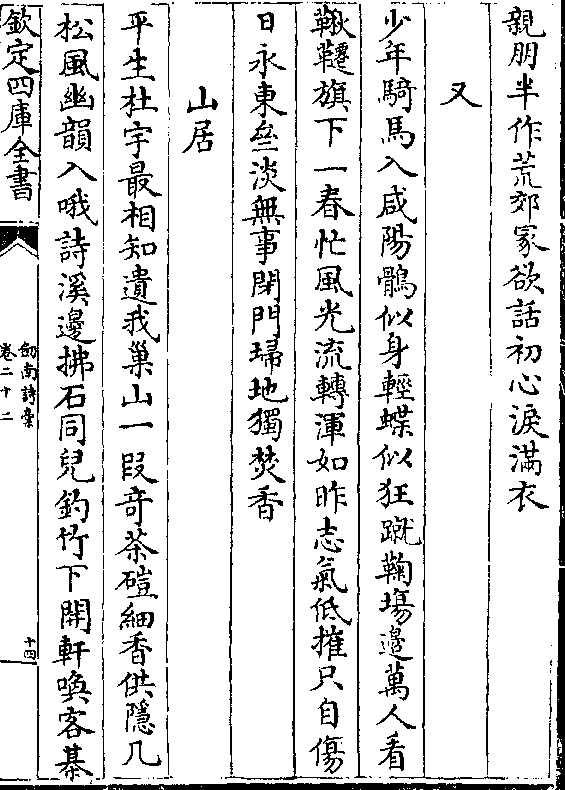 親朋半作荒郊冢欲話初心淚滿衣
又
少年騎馬入咸陽鶻似身輕蝶似狂蹴鞠塲邊萬人看
鞦韆旗下一春忙風光流轉渾如昨志氣低摧只自傷
日永東齋淡無事閉門埽地獨焚香
山居
平生杜宇最相知遺我巢山一段奇茶磑細香供隱几
松風幽韻入哦詩溪邊拂石同兒釣竹下開軒喚客棊
欽定四庫全書
劔南詩槀
卷二十二
十四